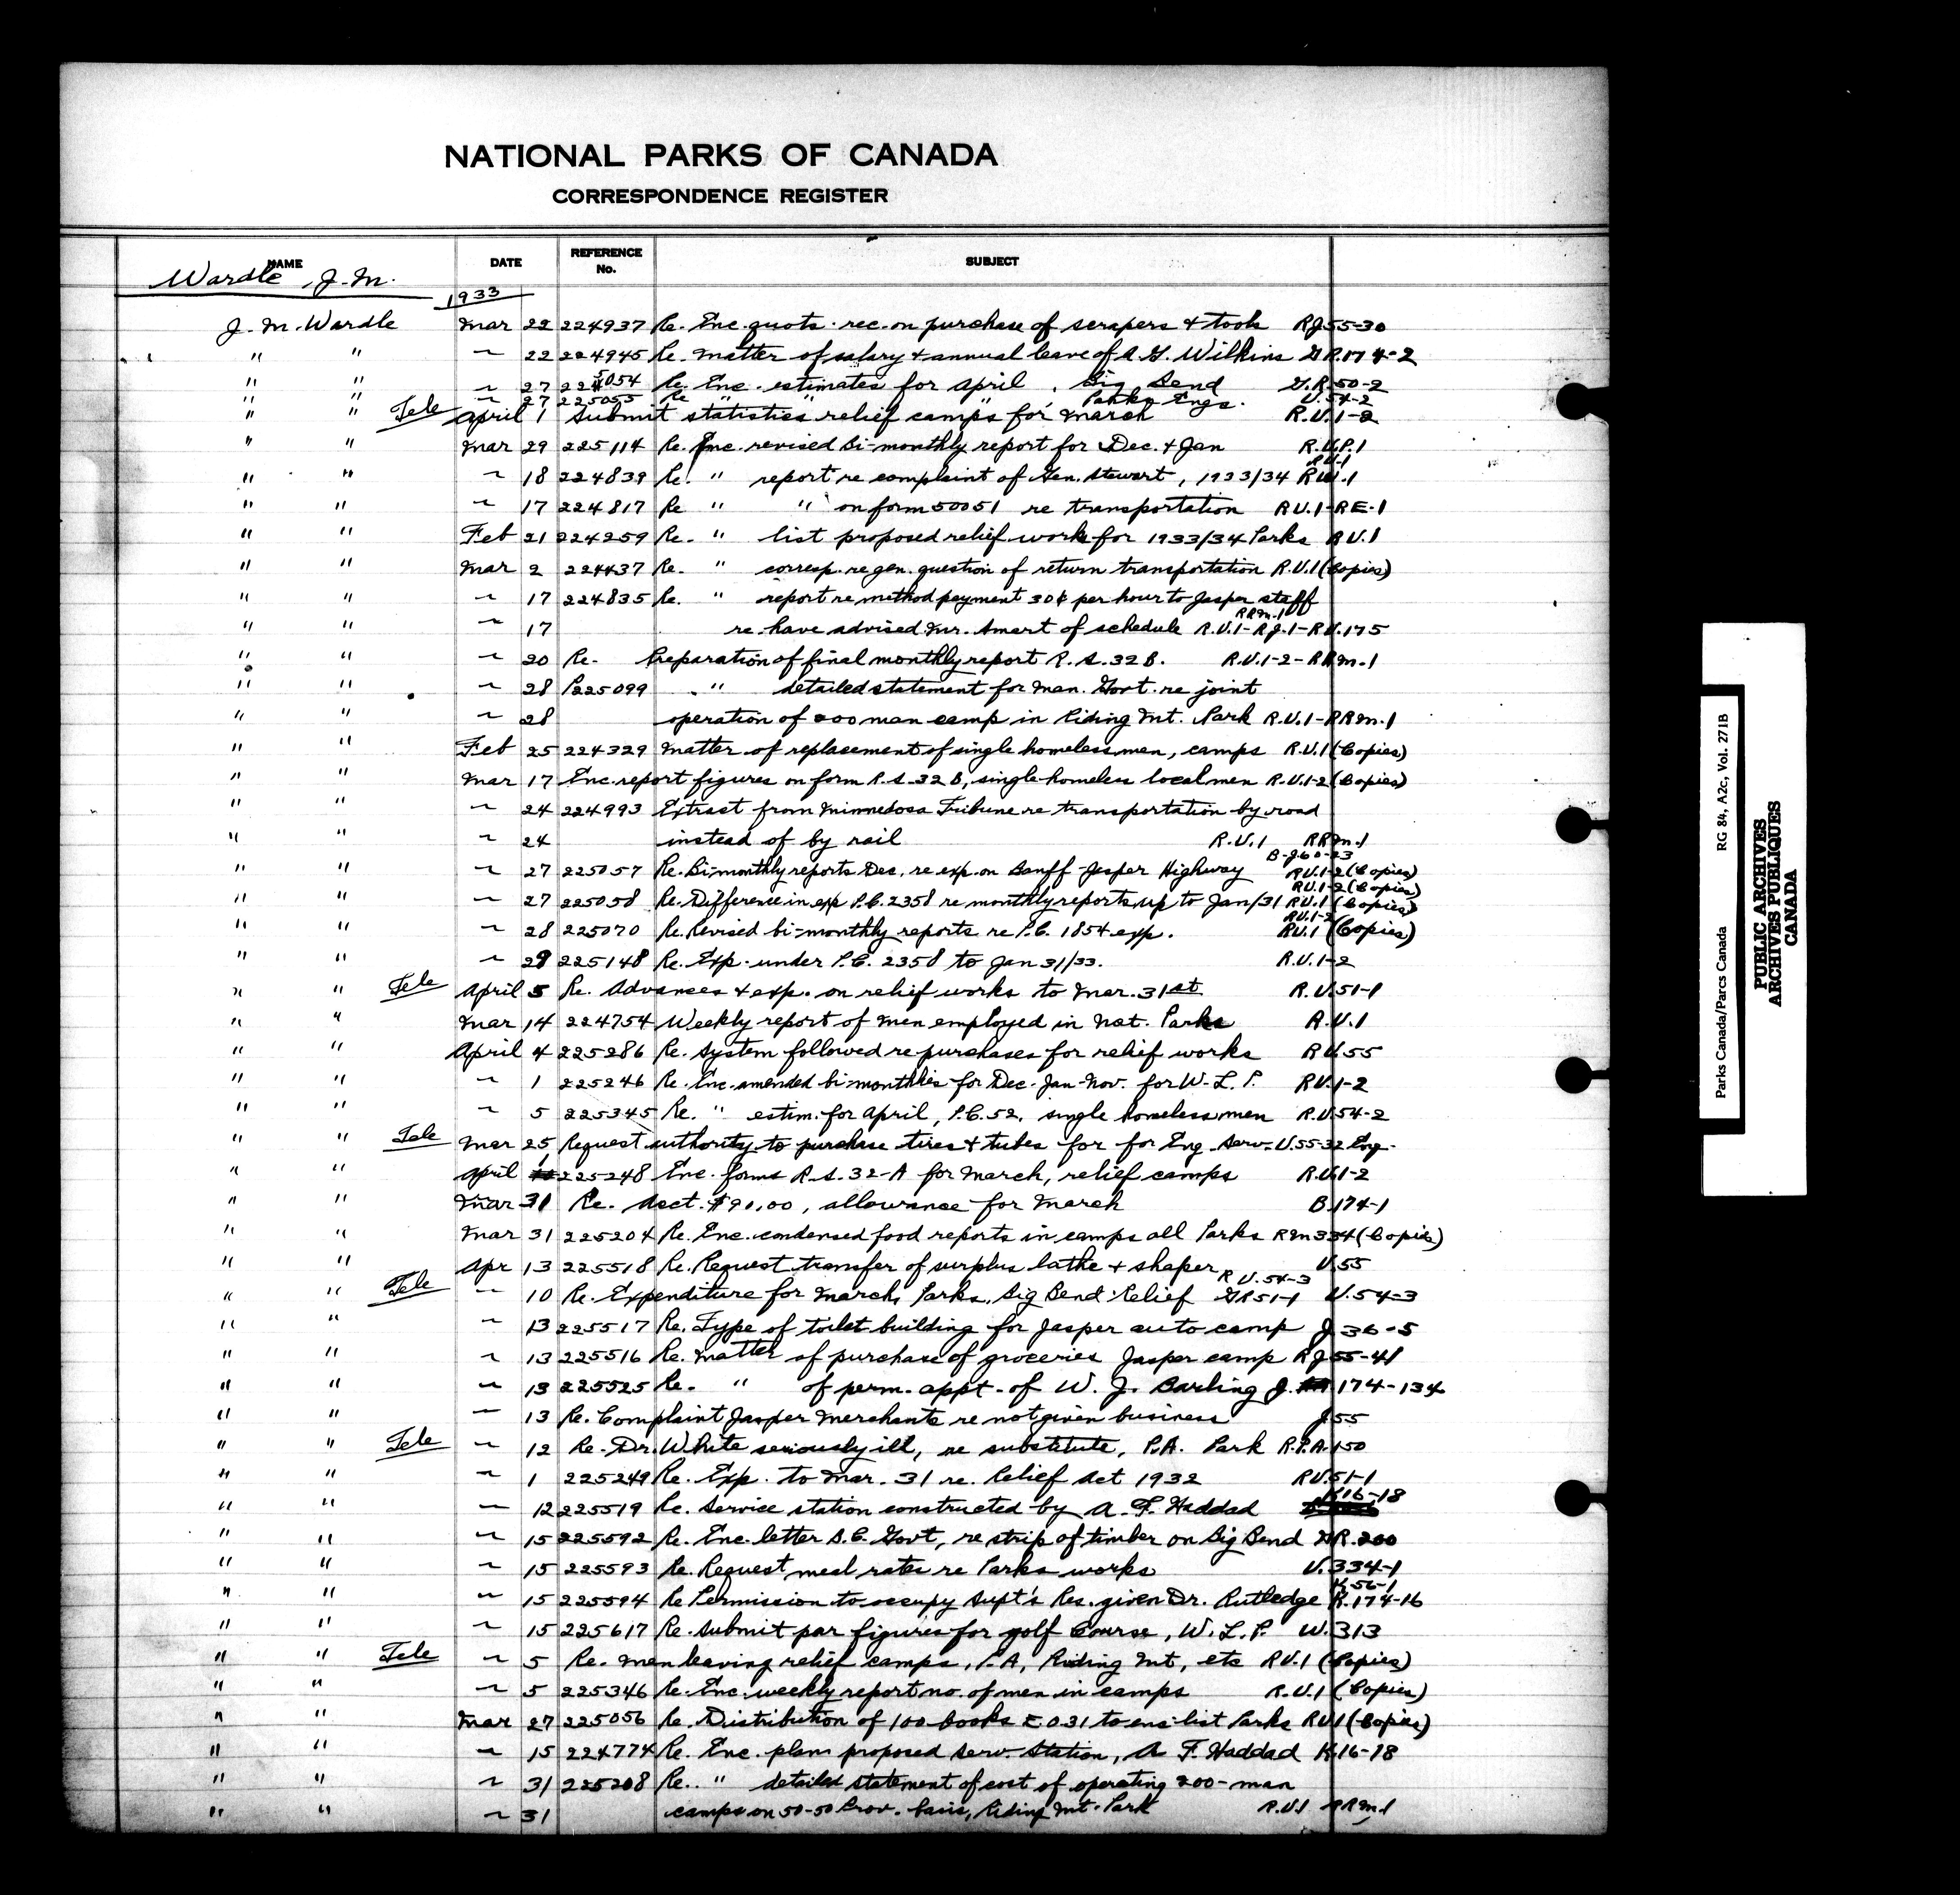 NATIONAL PARKS OF CANADA
CORRESPONDENCE REGISTER
NAME DATE REFERENCE No. SUBJECT
Wardle, J. M.
1933
J. M. Wardle Mar 22 224937 Re. Enc. quots. rec. on purchase of scrapers & tools RJ55-30
" " ~ 22 224945 Re. Matter of salary & annual leave of A. G. Wilkins GR.174-2
" " ~ 27 225054 Re. Enc. estimates for April, Big Bend G.R.50-2
" " ~ 27 225055 Re " " Parks Engs. U.54-2
" " Tele April 1 Submit statistics relief camps for March R.U.1-2
" " Mar 29 225114 Re. Enc. revised Bi-monthly report for Dec. & Jan R.U.P.1
RU-1
" " ~ 18 224839 Re. " report re complaint of Gen. Stewart, 1933/34 RW.1
" " ~ 17 224817 Re " " on form 50051 re transportation RU.1-RE-1
" " Feb 21 224259 Re. " list proposed relief work for 1933/34 Parks RU.1
" " Mar 2 224437 Re. " corresp. re gen. question of return transportation R.U.1 (Copies)
" " ~ 17 224835 Re. " report re method payment 30¢ per hour to Jasper staff
RRM.1
" " ~ 17 re have advised Mr. Smart of schedule R.U.1-RJ.1-RU.175
" " ~ 20 Re. Preparation of final monthly report R.S.32B. R.U.1-2-RRM-1
" " ~ 28 P225099 " detailed statement for Man. Govt. re joint
" " ~ 28 operation of 200 man camp in Riding Mt. Park R.U.1-RRM.1
" " Feb 25 224329 Matter of replacement of single homeless men, camps R.U.1 (Copies)
" " Mar 17 Enc. report figures on form R.S.32B, single homeless local men R.U.1-2 (Copies)
" " ~ 24 224993 Extract from Minnedosa Tribune re transportation by road
" " ~ 24 instead of by rail R.U.1 RRM-1
B-J60-23
" " ~ 27 225057 Re. Bi-monthly reports Dec. re exp. on Banff-Jasper Highway RU.1-2 (Copies)
RU.1-2 (Copies)
" " ~ 27 225058 Re. Difference in exp P.C. 2358 re monthly reports up to Jan/31 RU.1 (Copies)
RU.1-2
" " ~ 28 225070 Re. Revised bi-monthly reports re P.C. 1854 exp. RU.1 (Copies)
" " ~ 29 225148 Re. Exp. under P.C. 2358 to Jan 31/33. R.U.1-2
" " Tele April 5 Re. Advances & exp. on relief works to Mar. 31st R.U.51-1
" " Mar 14 224754 Weekly report of men employed in Nat. Parks R.U.1
" " April 4 225286 Re. System followed re purchases for relief works RU.55
" " ~ 1 225246 Re. Enc. amended bi-monthlies for Dec-Jan-Nov. for W. L. P. RU.1-2
" " ~ 5 225345 Re. " estim. for April, P.C. 52, single homeless men R.U.54-2
" " Tele Mar 25 Request authority to purchase tires & tubes for for Eng. Serv. U.55-32 Eng.
" " April 1 225248 Enc. forms R.S.32-A for March, relief camps R.U.1-2
" " Mar 31 Re. Acct. $90.00, allowance for March B.174-1
" " Mar 31 225204 Re. Enc. condensed food reports in camps all Parks RM334 (Copies)
" " Apr 13 225518 Re. Request transfer of surplus lathe & shaper U.55
R U.54-3
" " Tele ~ 10 Re. Expenditure for March, Parks, Big Bend Relief GR51-1 U.54-3
" " ~ 13 225517 Re. Type of toilet building for Jasper auto camp J.36-5
" " ~ 13 225516 Re. Matter of purchase of groceries Jasper camp RJ55-41
" " ~ 13 225525 Re. " of perm. appt. of W. J. Barling J. 174-134
" " ~ 13 Re. Complaint Jasper Merchants re not given business J55
" " Tele ~ 12 Re. Dr. White seriously ill, re substitute, P.A. Park R.P.A.150
" " ~ 1 225249 Re. Exp. to Mar. 31 re. Relief Act 1932 RU.51-1
K16-18
" " ~ 12 225519 Re. Service station constructed by A. F. Haddad
" " ~ 15 225592 Re. Enc. letter B.C. Govt, re strip of timber on Big Bend GR.200
" " ~ 15 225593 Re. Request meal rates re Parks works U.334-1
K.56-1
" " ~ 15 225594 Re Permission to occupy Supt's Res. given Dr. Rutledge K.174-16
" " ~ 15 225617 Re. Submit par figures for golf Course, W. L. P. W.313
" " Tele ~ 5 Re. Men leaving relief camps, P.A, Riding Mt, etc RU.1 (Copies)
" " ~ 5 225346 Re. Enc. weekly report no. of men in camps R.U.1 (Copies)
" " Mar 27 225056 Re. Distribution of 100 books E.031 to list Parks RU1 (Copies)
" " ~ 15 224774 Re. Enc. plans proposed Serv. Station, A F. Haddad K16-18
" " ~ 31 225208 Re. " detailed statement of cost of operating 200-man
" " ~ 31 camps on 50-50 Prov. basis, Riding Mt. Park R.U.1 RRM.1
Parks Canada/Parcs Canada RG 84, A2c, Vol. 271B
PUBLIC ARCHIVES
ARCHIVES PUBLIQUES
CANADA